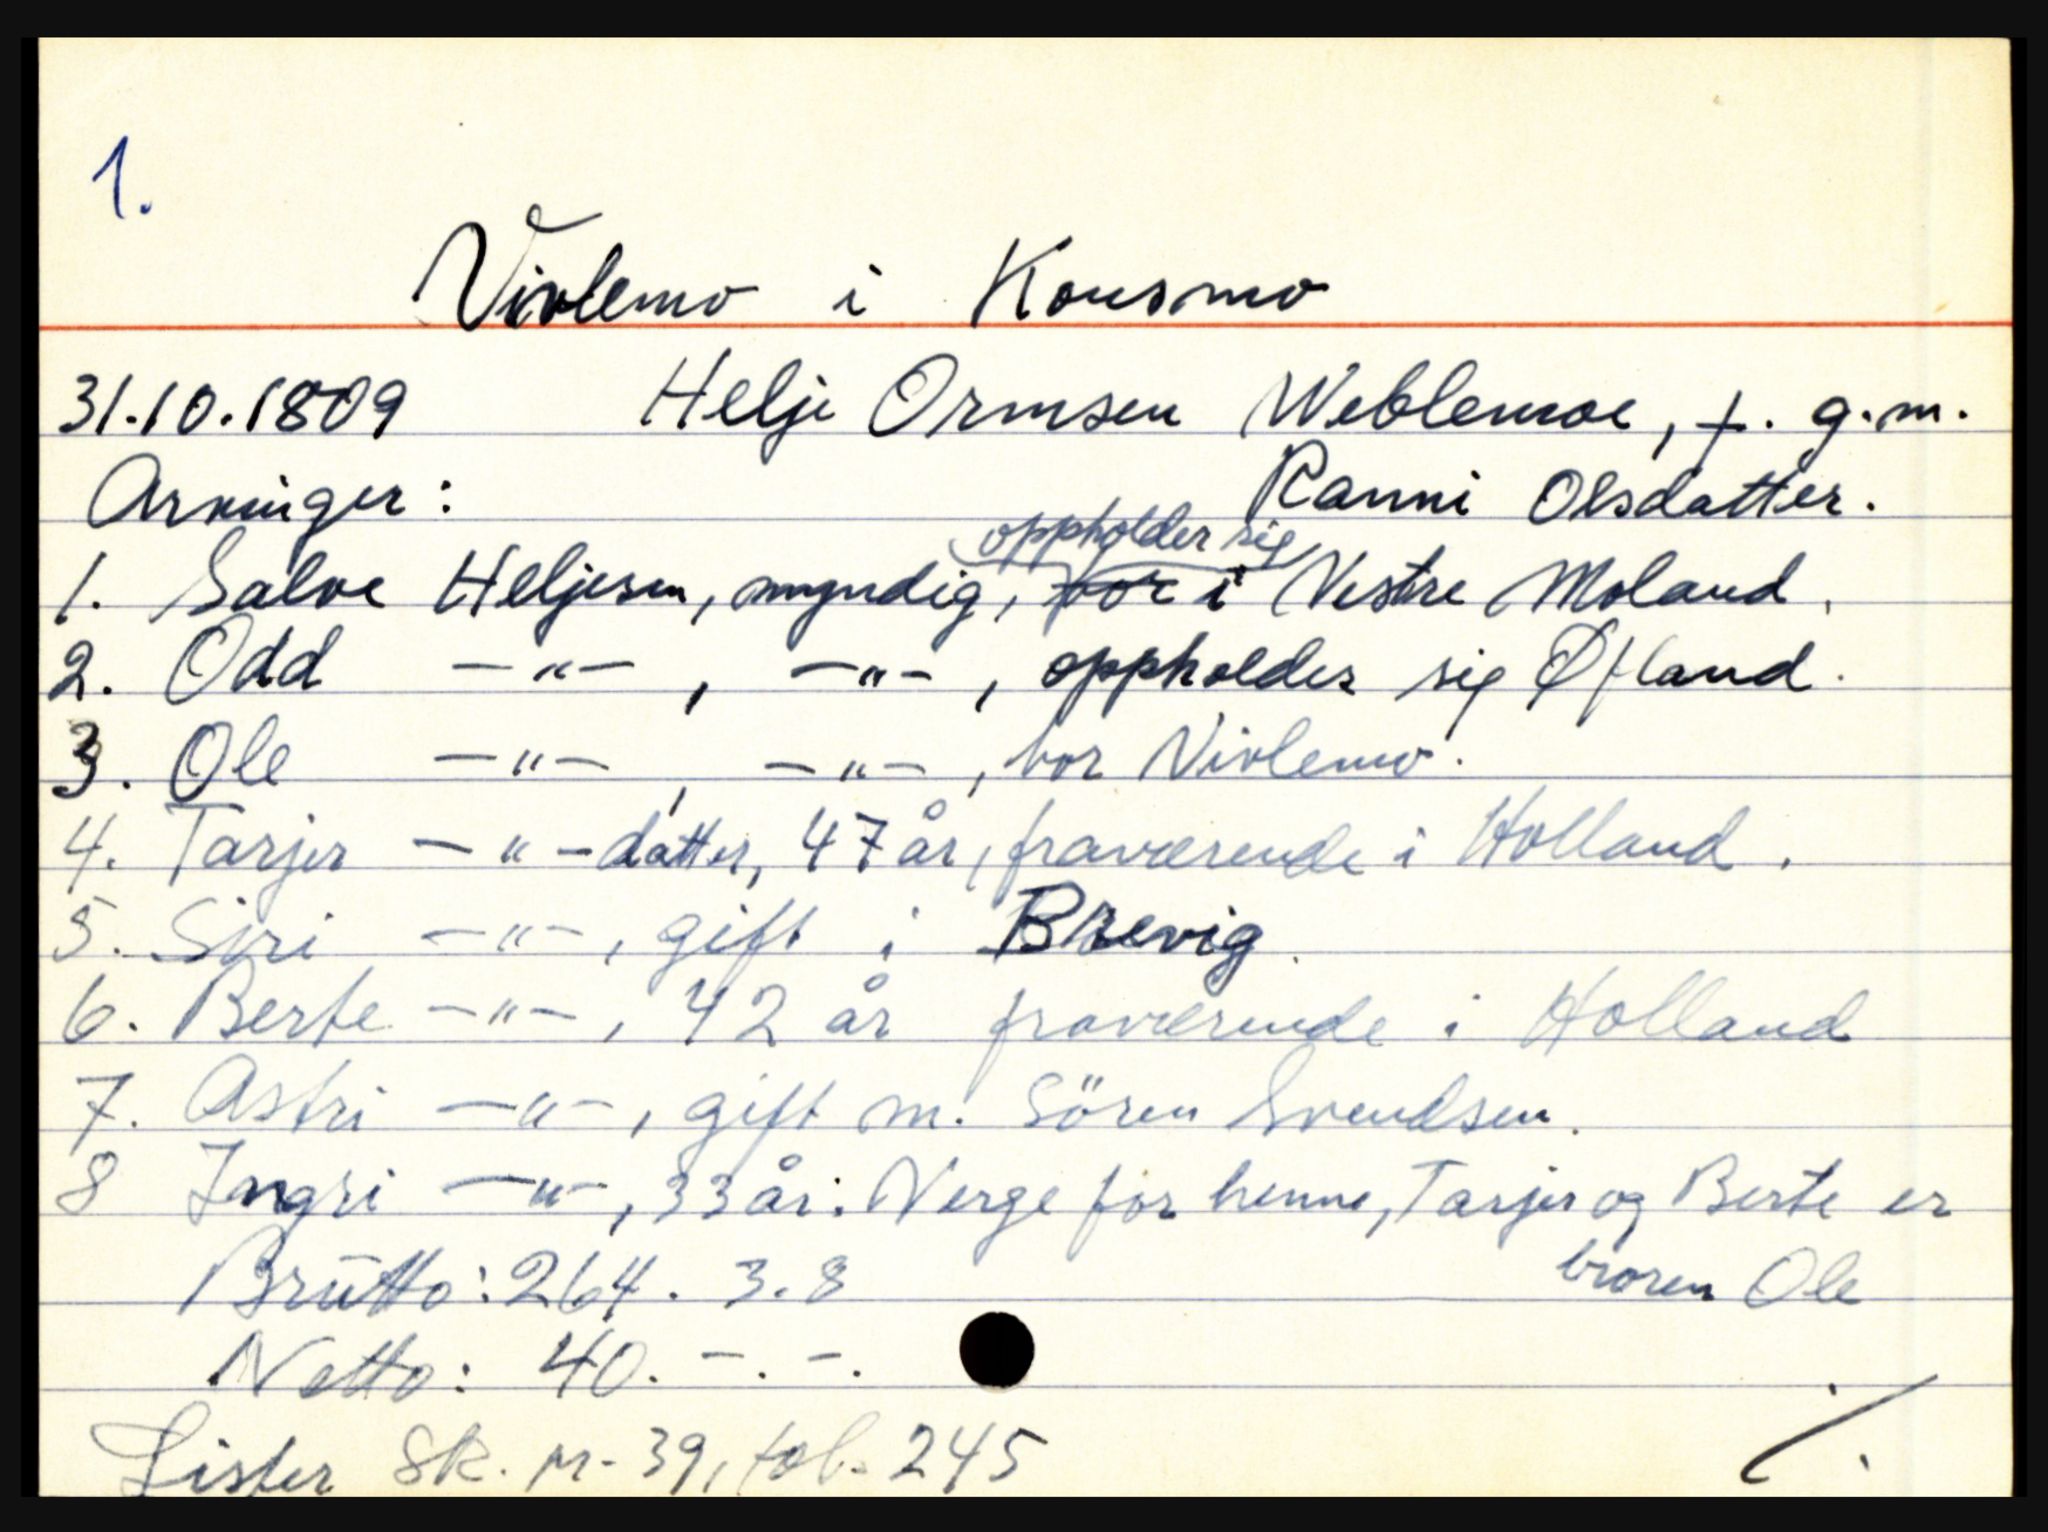 1.
Vivlemo i Konsmo
31.10.1809 Helje Ormsen Weblemoe, †. g.m.
Arvinger: Ranni Olsdatter.
oppholder sig
1. Salve Heljesen, myndig, bor i Vestre Moland.
2. Odd —"—, —"—, oppholder sig Øfland.
3. Ole —"—, —"—, bor Vivlemo.
4. Tarjer —"—datter, 47 år, fraværende i Holland.
5. Siri —"—, gift i Brevig.
6. Berte —"—, 42 år fraværende i Holland
7. Astri —"—, gift m. Sören Svendsen.
8 Ingri —"—, 33 år: Verge for henne, Tarjer og Berte er
broren Ole
Brutto: 264. 3. 8
Netto: 40. -. -.
Lister Sk. nr. 39, fol. 245
./.